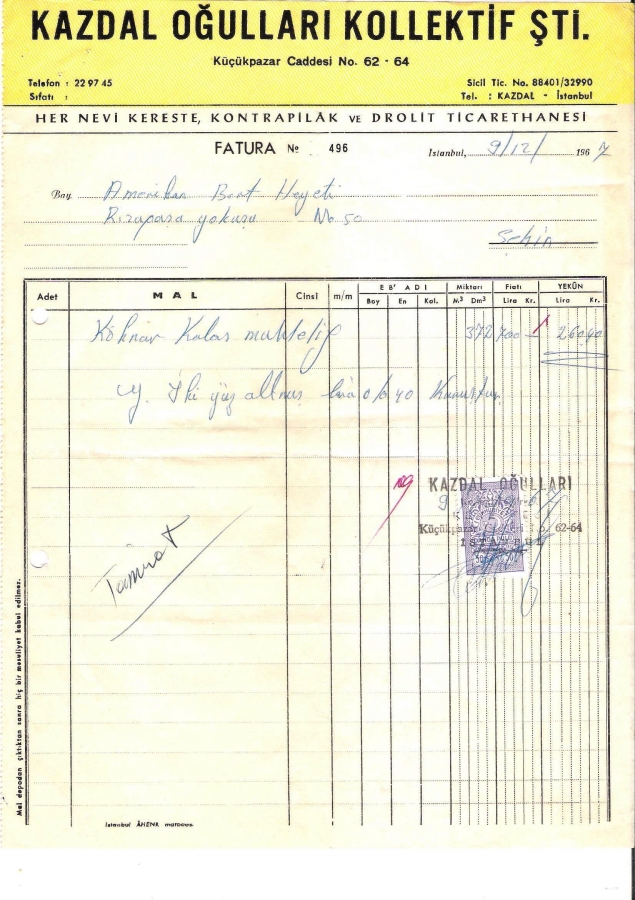 KAZDAL OĞULLARI KOLLEKTİF ŞTİ.
Küçükpazar Caddesi No. 62 - 64
Telefon : 22 97 45
Sicil Tic. No. 88401/32990
Sıfatı :
Tel. : KAZDAL - İstanbul
HER NEVİ KERESTE, KONTRAPİLÂK VE DROLİT TİCARETHANESİ
FATURA № 496
İstanbul, 9/12/ 1967
Bay Amerikan Bort Heyeti
Rızapaşa yokuşu No 50
Şehir
Adet MAL Cinsi m/m EB'ADI Miktarı Fiatı YEKÛN
Boy En Kal. M³ Dm³ Lira Kr. Lira Kr.
Köknar Kalas muhtelif 372 700 - 260.40
Y. İki yüz altmış lira 0/0 40 Kuruştur.
KAZDAL OĞULLARI
Küçükpazar 62-64
İSTANBUL
Tamirat
Mal depodan çıktıktan sonra hiç bir mesuliyet kabul edilmez.
İstanbul ÂHENK matbaası